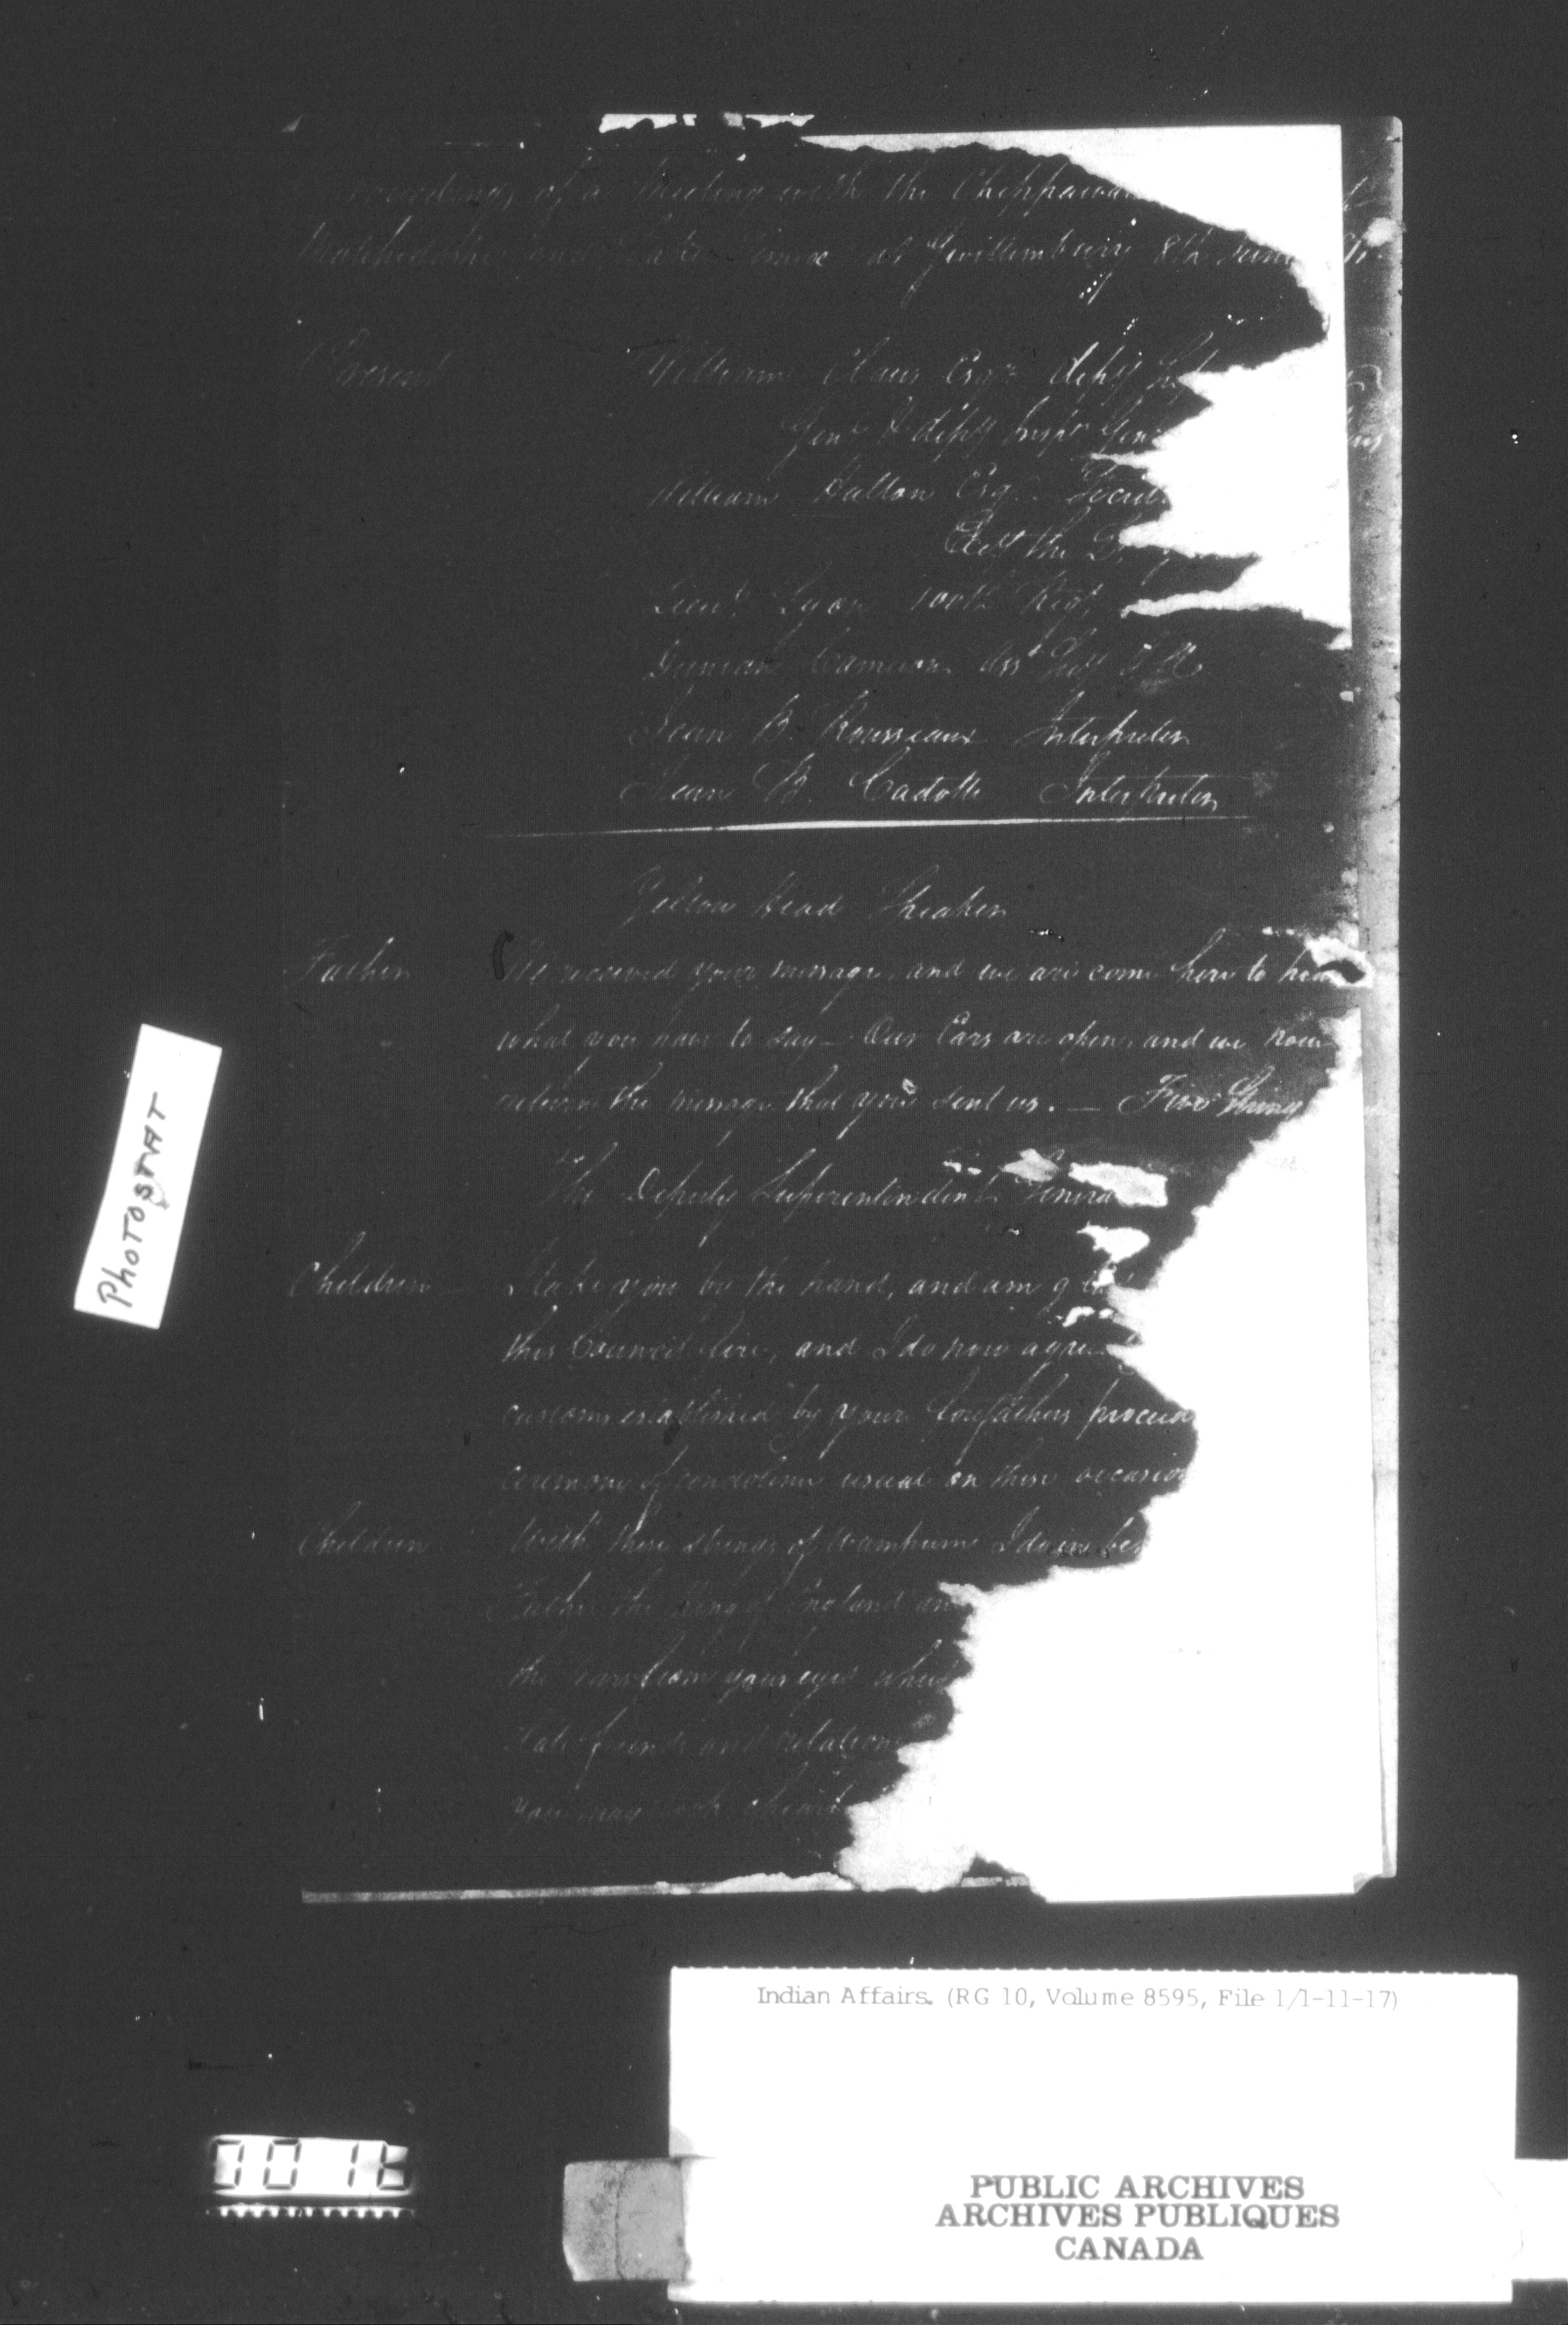 of a Meeting with the Chippawas
Matchedash and Lake Simcoe at Gwillimbury 8th June
Present William Claus Esqr. depy
Genl. & depy Inspr Gen
William Halton Esqr.
the
Lieut. Lyon 100th Regt
Duncan Cameron
Jean B. Rousseaux Interpreter
Jean B. Cadotte Interpreter
Yellow Head Speaker
Father We received your message, and we are come here to hea
what you have to say — Our Ears are open, and we now
return the message that you sent us. — Five String
The Deputy Superintendent Genera
Children I take you by the hand, and am g
this Council fire, and I do now agree
customs established by your forefathers proceed
ceremony of condolence usual on these occasion
Children With these strings of Wampum I do in be
Father the King of England an
the tears from your eyes which
late friends and relation
you may
PHOTOSTAT
Indian Affairs. (RG 10, Volume 8595, File 1/1-11-17)
PUBLIC ARCHIVES
ARCHIVES PUBLIQUES
CANADA